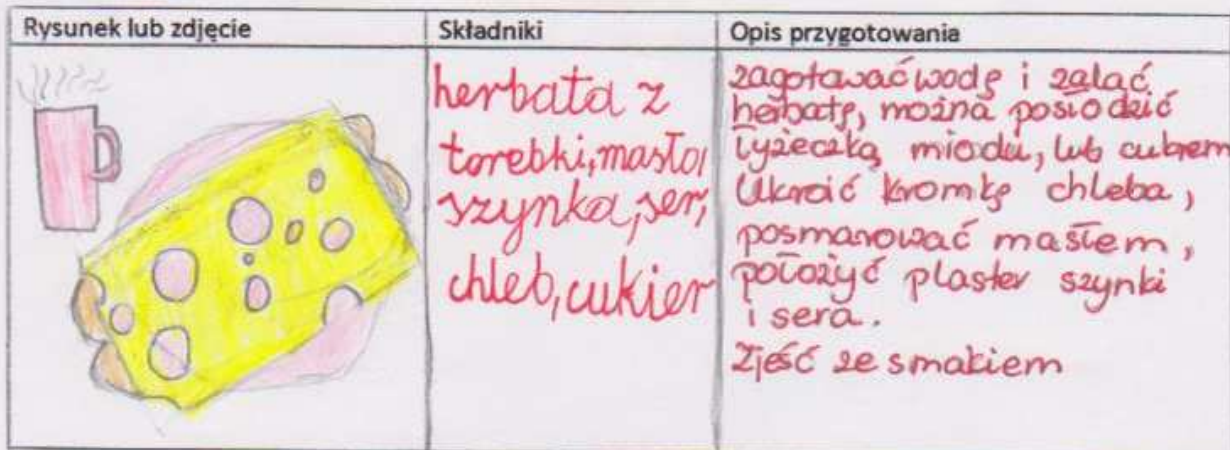 Rysunek lub zdjęcie
Składniki
Opis przygotowania
herbata z
torebki, masło,
szynka, ser,
chleb, cukier
zagotować wodę i zalać
herbatę, można posłodzić
łyżeczką miodu, lub cukrem
Ukroić kromkę chleba,
posmarować masłem,
położyć plaster szynki
i sera.
Zjeść ze smakiem